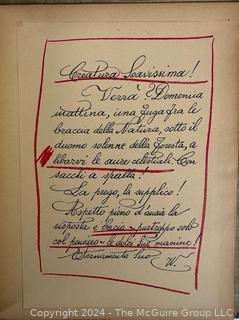 Creatura Soavissima!
Verrà? Domenica
mattina, una fuga fra le
braccia della Natura, sotto il
duomo solenne della foresta, a
libarvi le aure celestiali. Con
sacchi a spalla!
La prego, la supplico!
Aspetto pieno d'ansia la
risposta e bacio - purtroppo solo
col pensiero - le dolci Sue manine!
Eternamente Suo
W.
Copyright © 2024 - The McGuire Group LLC